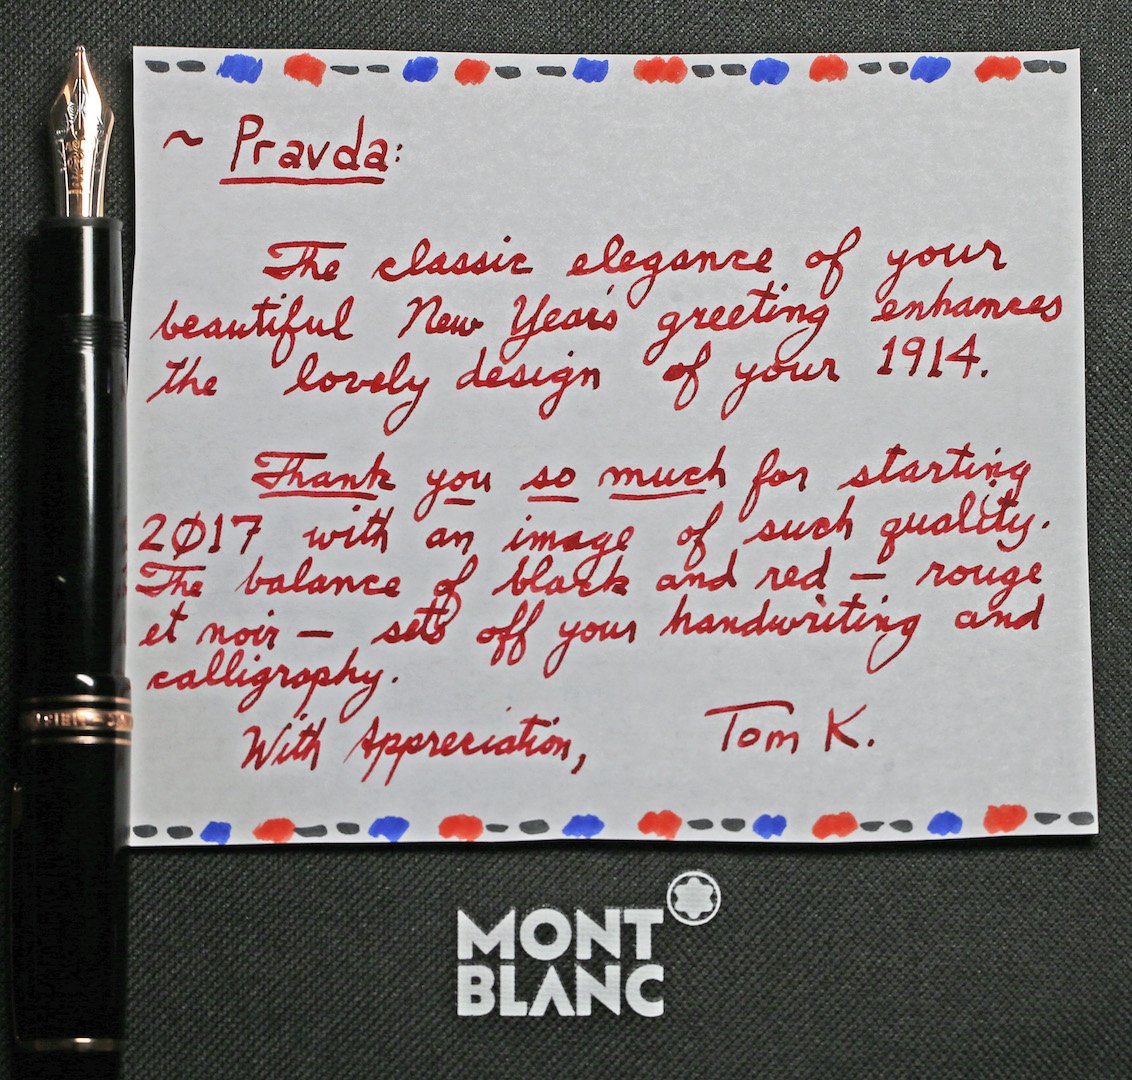 ~ Pravda:
The classic elegance of your
beautiful New Year's greeting enhances
the lovely design of your 1914.
Thank you so much for starting
2Ø17 with an image of such quality.
The balance of black and red — rouge
et noir — sets off your handwriting and
calligraphy.
With Appreciation, Tom K.
MONT
BLANC